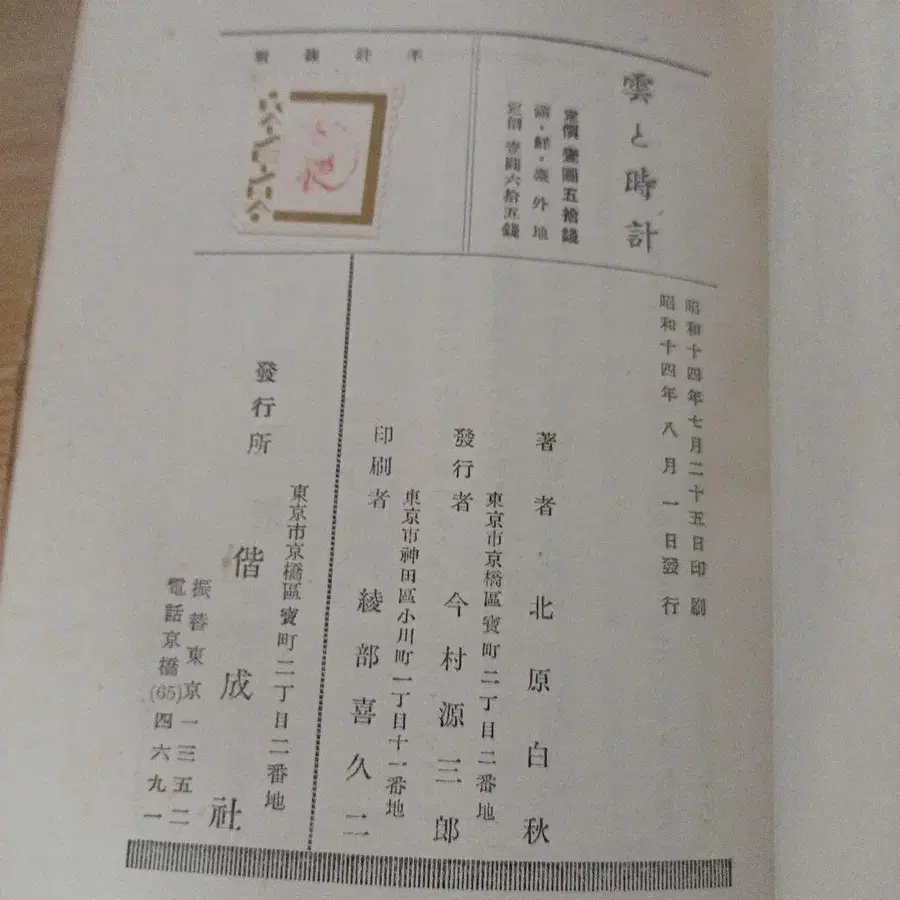 雲と時計
定價 壹圓五拾錢
滿・鮮・臺外地
定價 壹圓六拾五錢
不許複製
昭和十四年七月二十五日印刷
昭和十四年八月一日發行
著者 北原白秋
東京市京橋區寳町二丁目二番地
發行者 今村源三郎
東京市神田區小川町一丁目十一番地
印刷者 綾部喜久二
東京市京橋區寳町二丁目二番地
發行所 偕成社
振替東京一三五二
電話京橋(65)四六九一